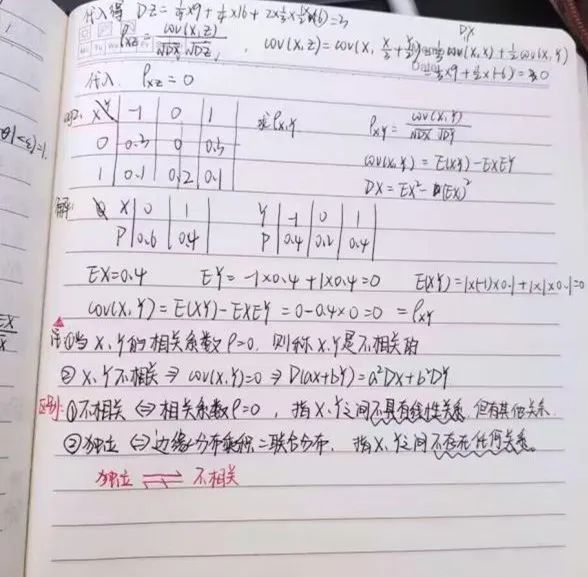 代入得 DZ = 1/9×9 + 1/4×16 + 2×1/3×1/2×(-6) = 3
ρxz = cov(X,Z)/√DX √DZ , cov(X,Z) = cov(X, X/3 + Y/2) = 1/3 cov(X,X) + 1/2 cov(X,Y)
DX
= 1/3×9 + 1/2×(-6) = 0
代入. ρxz = 0
eg2. X\Y | -1 | 0 | 1 求ρx,y ρxy = cov(X,Y)/√DX √DY
0 | 0.3 | 0 | 0.3 cov(X,Y) = E(XY) - EXEY
1 | 0.1 | 0.2 | 0.1 DX = EX² - (EX)²
解: X | 0 | 1 Y | -1 | 0 | 1
P | 0.6 | 0.4 P | 0.4 | 0.2 | 0.4
EX=0.4 EY = -1×0.4 + 1×0.4 = 0 E(XY) = 1×(-1)×0.1 + 1×1×0.1 = 0
cov(X,Y) = E(XY) - EXEY = 0 - 0.4×0 = 0 = ρxy
注①当 X、Y的相关系数 ρ=0, 则称 X.Y是不相关的
② X、Y不相关 ⇒ cov(X,Y)=0 ⇒ D(aX+bY) = a²DX + b²DY
区别: ①不相关 ⇔ 相关系数ρ=0 , 指X、Y之间不具有线性关系, 但有其他关系
②独立 ⇔ 边缘分布乘积=联合分布. 指X、Y之间不存在任何关系。
独立 ⇌ 不相关